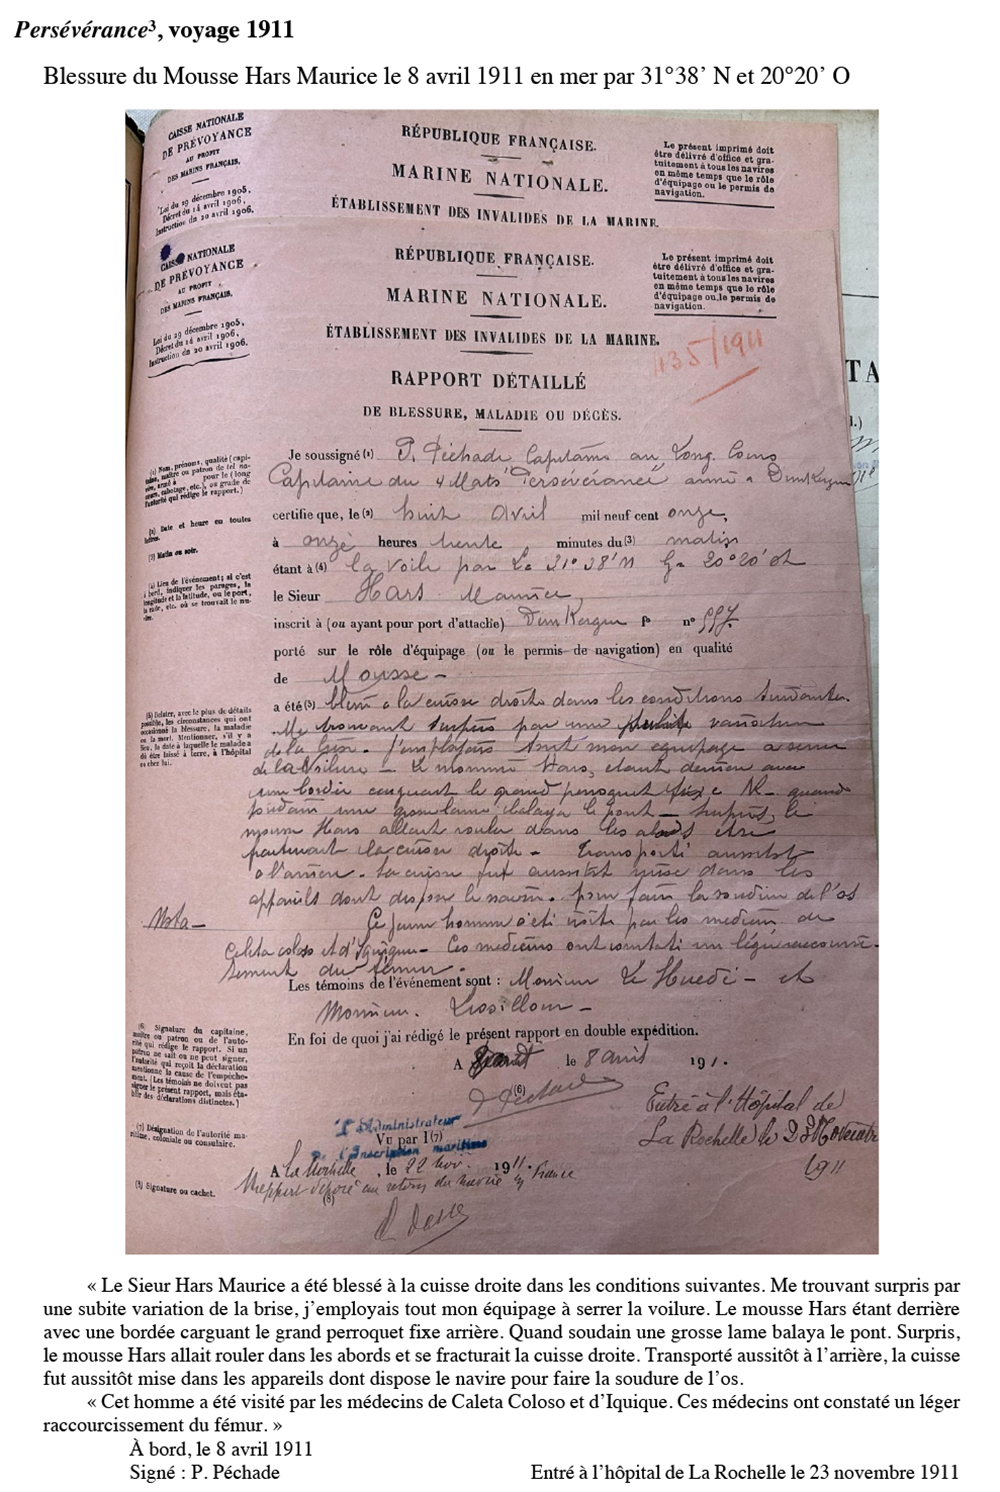 Persévérance³, voyage 1911
Blessure du Mousse Hars Maurice le 8 avril 1911 en mer par 31°38’ N et 20°20’ O
CAISSE NATIONALE
DE PRÉVOYANCE
AU PROFIT
DES MARINS FRANÇAIS.
Loi du 29 décembre 1905.
Décret du 14 avril 1906.
Instruction du 20 avril 1906.
RÉPUBLIQUE FRANÇAISE.
MARINE NATIONALE.
ÉTABLISSEMENT DES INVALIDES DE LA MARINE.
Le présent imprimé doit
être délivré d'office et gra-
tuitement à tous les navires
en même temps que le rôle
d'équipage ou le permis de
navigation.
CAISSE NATIONALE
DE PRÉVOYANCE
AU PROFIT
DES MARINS FRANÇAIS.
Loi du 29 décembre 1905.
Décret du 14 avril 1906.
Instruction du 20 avril 1906.
RÉPUBLIQUE FRANÇAISE.
MARINE NATIONALE.
ÉTABLISSEMENT DES INVALIDES DE LA MARINE.
Le présent imprimé doit
être délivré d'office et gra-
tuitement à tous les navires
en même temps que le rôle
d'équipage ou le permis de
navigation.
135/1911
RAPPORT DÉTAILLÉ
DE BLESSURE, MALADIE OU DÉCÈS.
Je soussigné (1) P. Péchade Capitaine au Long Cours
Capitaine du 4 Mats "Persévérance" armé à Dunkerque
certifie que, le (2) huit Avril mil neuf cent onze,
à onze heures trente minutes du (3) matin
étant à (4) la voile par La 31°38'N G 20°20'
le Sieur Hars Maurice,
inscrit à (ou ayant pour port d'attache) Dunkerque f° n° 557
porté sur le rôle d'équipage (ou le permis de navigation) en qualité
de Mousse -
a été (5) blessé à la cuisse droite dans les conditions suivantes.
Me trouvant surpris par une subite variation
de la brise. J'employais tout mon équipage a serrer
de la Voilure - Le mousse Hars, étant derrière avec
une bordée carguant le grand perroquet fixe N. quand
soudain une grosse lame balaya le pont - Surpris, le
mousse Hars allait rouler dans les abords et se
fracturait la cuisse droite - Transporté aussitôt
a l'arrière - la cuisse fut aussitôt mise dans les
appareils dont dispose le navire - pour faire la soudure de l'os
Nota - Ce jeune homme a été visité par les médecins de
Caleta coloso et d'Iquique - Ces medecins ont constaté un léger raccourcis-
sement du fémur.
Les témoins de l'événement sont : Monsieur Le Huedé - et
Monsieur
En foi de quoi j'ai rédigé le présent rapport en double expédition.
A le 8 avril 191 .
(6)
P Péchade
Entré à l'Hôpital de
La Rochelle le 23 Novembre
1911
L'Administrateur
Vu par 1(7)
de l'Inscription maritime
A La Rochelle, le 22 nov. 1911.
Rapport déposé au retour du navire en France
(8)
(1) Nom, prénoms, qualité (capi-
taine, maître ou patron de tel na-
vire, armé à pour le (long
cours, cabotage, etc.), ou grade de
l'autorité qui rédige le rapport.)
(2) Date et heure en toutes
lettres.
(3) Matin ou soir.
(4) Lieu de l'événement; si c'est
à bord, indiquer les parages, la
longitude et la latitude, ou le port,
la rade, etc. où se trouvait le na-
vire.
(5) Relater, avec le plus de détails
possible, les circonstances qui ont
occasionné la blessure, la maladie
ou la mort. Mentionner, s'il y a
lieu, la date à laquelle le malade a
dû être laissé à terre, à l'hôpital
ou chez lui.
(6) Signature du capitaine,
maître ou patron ou de l'auto-
rité qui rédige le rapport. Si un
patron ne sait ou ne peut signer,
l'autorité qui reçoit la déclaration
mentionne la cause de l'empêche-
ment. (Les témoins ne doivent pas
signer le présent rapport, mais éta-
blir des déclarations distinctes.)
(7) Désignation de l'autorité ma-
ritime, coloniale ou consulaire.
(8) Signature ou cachet.
« Le Sieur Hars Maurice a été blessé à la cuisse droite dans les conditions suivantes. Me trouvant surpris par
une subite variation de la brise, j’employais tout mon équipage à serrer la voilure. Le mousse Hars étant derrière
avec une bordée carguant le grand perroquet fixe arrière. Quand soudain une grosse lame balaya le pont. Surpris,
le mousse Hars allait rouler dans les abords et se fracturait la cuisse droite. Transporté aussitôt à l’arrière, la cuisse
fut aussitôt mise dans les appareils dont dispose le navire pour faire la soudure de l’os.
« Cet homme a été visité par les médecins de Caleta Coloso et d’Iquique. Ces médecins ont constaté un léger
raccourcissement du fémur. »
À bord, le 8 avril 1911
Signé : P. Péchade
Entré à l’hôpital de La Rochelle le 23 novembre 1911